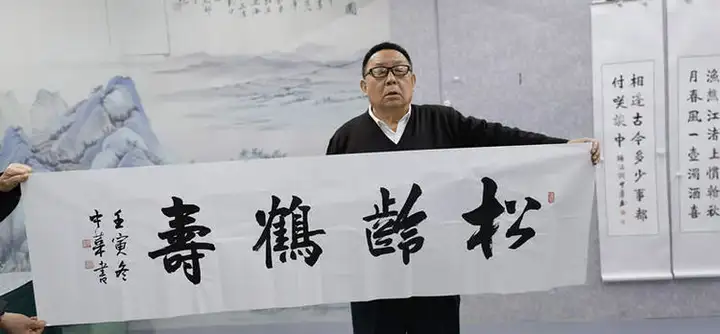 松齡鶴壽
壬寅冬
書
漁樵江渚上慣看秋
月春風一壺濁酒喜
相逢古今多少事都
付咲談中